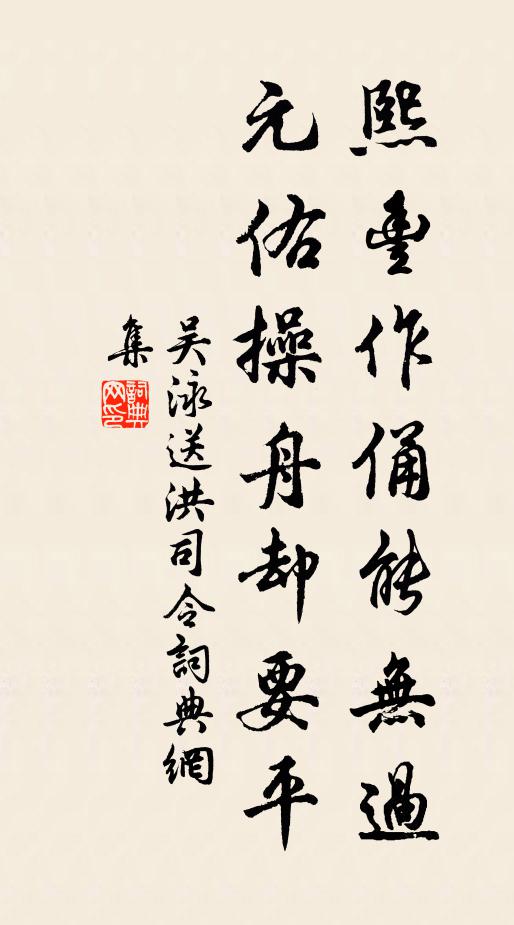 熙豊作俑能無過
元佑操舟却要平
吴泳送洪司令詞典網
集
詞典
网印